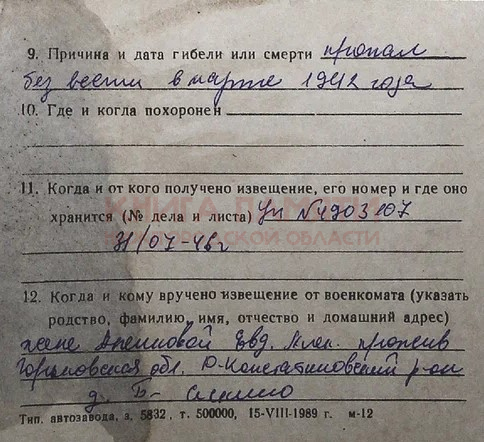 9. Причина и дата гибели или смерти пропал
без вести в марте 1942 года
10. Где и когла похоронен
11. Когда и от кого получено извещение, его номер и где оно
хранится (№ дела и листа) Уп №4903107
31/07-46г
КНИГА ПАМЯТИ
ОБЛАСТИ
12. Когда и кому вручено извещение от военкомата (указать
родство, фамилию, имя, отчество и домашний адрес)
жене Евд. прожив
Горьковская обл. Д-Константиновский р-он
д. Б-
Тип. автозавода, з. 5832, т. 500000, 15-VIII-1989 г. м-12